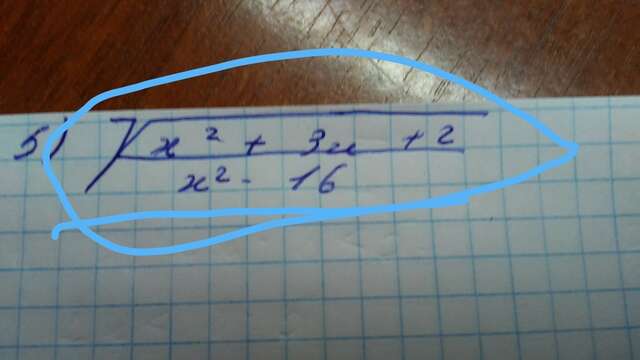 5) √ x² + 3x + 2
x² - 16